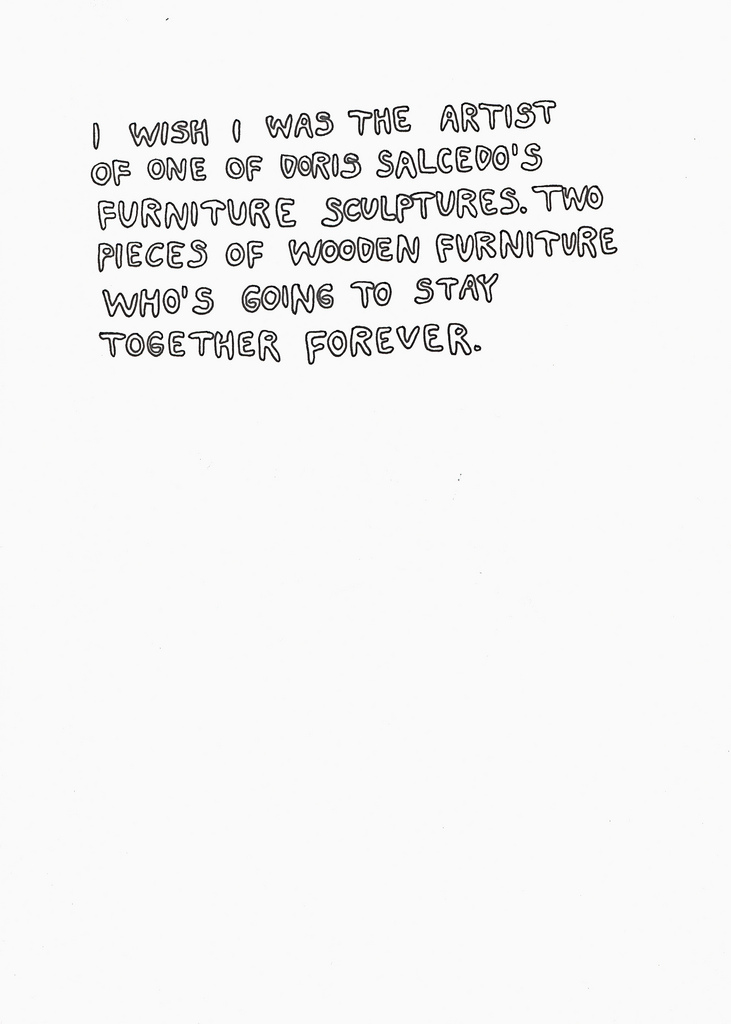 I WISH I WAS THE ARTIST
OF ONE OF DORIS SALCEDO'S
FURNITURE SCULPTURES. TWO
PIECES OF WOODEN FURNITURE
WHO'S GOING TO STAY
TOGETHER FOREVER.